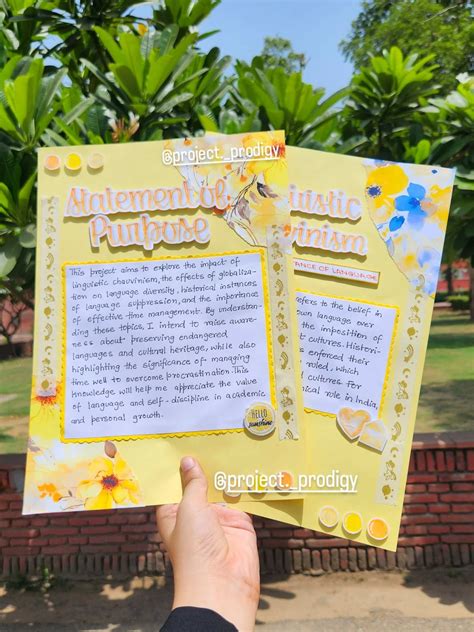 @project._prodigy
Statement of
Purpose
This project aims to explore the impact of
linguistic chauvinism, the effects of globaliza-
tion on language diversity, historical instances
of language suppression, and the importance
of effective time management. By understan-
ding these topics, I intend to raise aware-
ness about preserving endangered
languages and cultural heritage, while also
highlighting the significance of managing
time well to overcome procrastination. This
knowledge will help me appreciate the value
of language and self-discipline in academic
and personal growth.
HELLO
sunshine
@project._prodigy
uistic
vinism
TANCE OF LANGUAGE
refers to the belief in
own language over
the imposition of
tures. Histori-
s enforced their
roled, which
cultures. For
ical role in India,